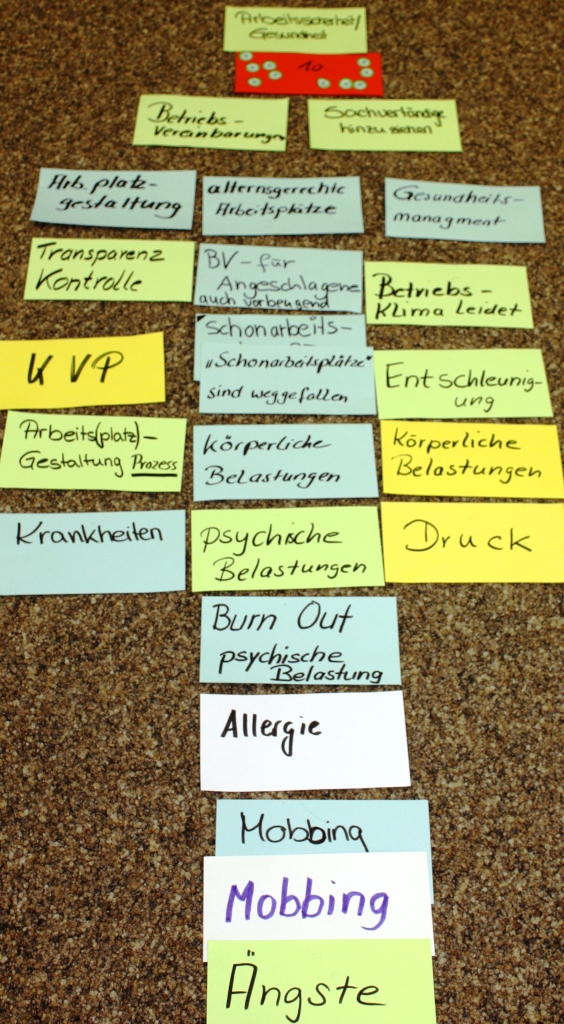 Arbeitssicherheit/
Gesundheit
10
Betriebs-
vereinbarungen
Sachverständige
hinzu ziehen
Arb.platz-
gestaltung
alternsgerechte
Arbeitsplätze
Gesundheits-
managment
Transparenz
Kontrolle
BV-für
Angeschlagene
auch vorbeugend
Betriebs-
Klima leidet
Schonarbeits-
KVP
"Schonarbeitsplätze"
sind weggefallen
Entschleunig-
ung
Arbeits(platz)-
Gestaltung Prozess
körperliche
Belastungen
Körperliche
Belastungen
Krankheiten
psychische
Belastungen
Druck
Burn Out
psychische
Belastung
Allergie
Mobbing
Mobbing
Ängste